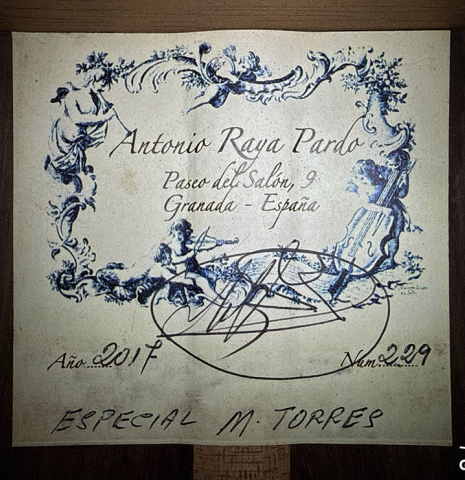 Antonio Raya Pardo
Paseo del Salón, 9
Granada - España
Año 2017
Num 229
ESPECIAL M. TORRES